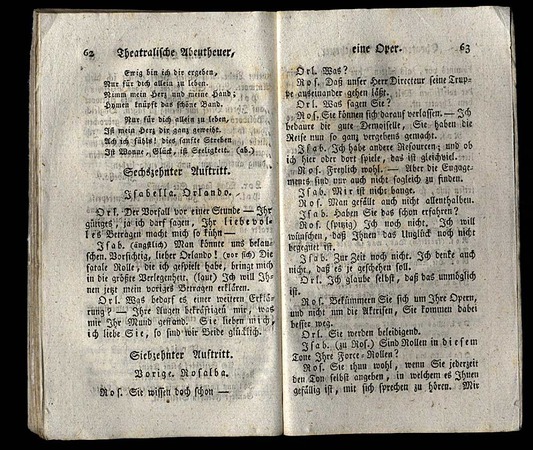 62 Theatralische Abentheuer,
Ewig bin ich dir ergeben,
Nur für dich allein zu leben.
Nimm mein Herz und meine Hand;
Hymen knüpft das schöne Band.
Nur für dich allein zu leben,
Ist mein Herz dir ganz geweiht.
Ach ich fühls! dies sanfte Streben
Ist Wonne, Glück, ist Seeligkeit. (ab.)
Sechszehnter Auftritt.
Isabella. Orlando.
Orl. Der Vorfall vor einer Stunde — Ihr
gütiges, ja ich darf sagen, Ihr liebevol-
les Betragen macht mich so kühn —
Isab. (ängstlich) Man könnte uns belau-
schen. Vorsichtig, lieber Orlando! (vor sich) Die
fatale Rolle, die ich gespielt habe, bringt mich
in die größte Verlegenheit. (laut) Ich will Ih-
nen jetzt mein voriges Betragen erklären.
Orl. Was bedarf es einer weitern Erklä-
rung? — Ihre Augen bekräftigen mir, was
mir Ihr Mund gestand. Sie lieben mich,
ich liebe Sie, so sind wir Beide glücklich.
Siebzehnter Auftritt.
Vorige. Rosalba.
Ros. Sie wissen doch schon —
eine Oper. 63
Orl. Was?
Ros. Daß unser Herr Directeur seine Trup-
pe auseinander gehen läßt.
Orl. Was sagen Sie?
Ros. Sie können sich darauf verlassen. — Ich
bedaure die gute Demoiselle, Sie haben die
Reise nun so ganz vergebens gemacht.
Isab. Ich habe andere Resourcen; und ob
ich hier oder dort spiele, das ist gleichviel.
Ros. Freylich wohl. — Aber die Engage-
ments sind nur auch nicht sogleich zu finden.
Isab. Mir ist nicht bange.
Ros. Man gefällt auch nicht allenthalben.
Isab. Haben Sie das schon erfahren?
Ros. (spitzig) Ich noch nicht. Ich will
wünschen, daß Ihnen das Unglück noch nicht
begegnet ist.
Isab. Zur Zeit noch nicht. Ich denke auch
nicht, daß es je geschehen soll.
Orl. Ich glaube selbst, daß das unmöglich
ist.
Ros. Bekümmern Sie sich um Ihre Opern,
und nicht um die Aktrisen, Sie kommen dabei
besser weg.
Orl. Sie werden beleidigend.
Isab. (zu Ros.) Sind Rollen in diesem
Tone Ihre Force-Rollen?
Ros. Ihnn wohl, wenn Sie jederzeit
den Ton selbst angeben, in welchem es Ihnen
gefällig ist, mit sich sprechen zu hören. Mir